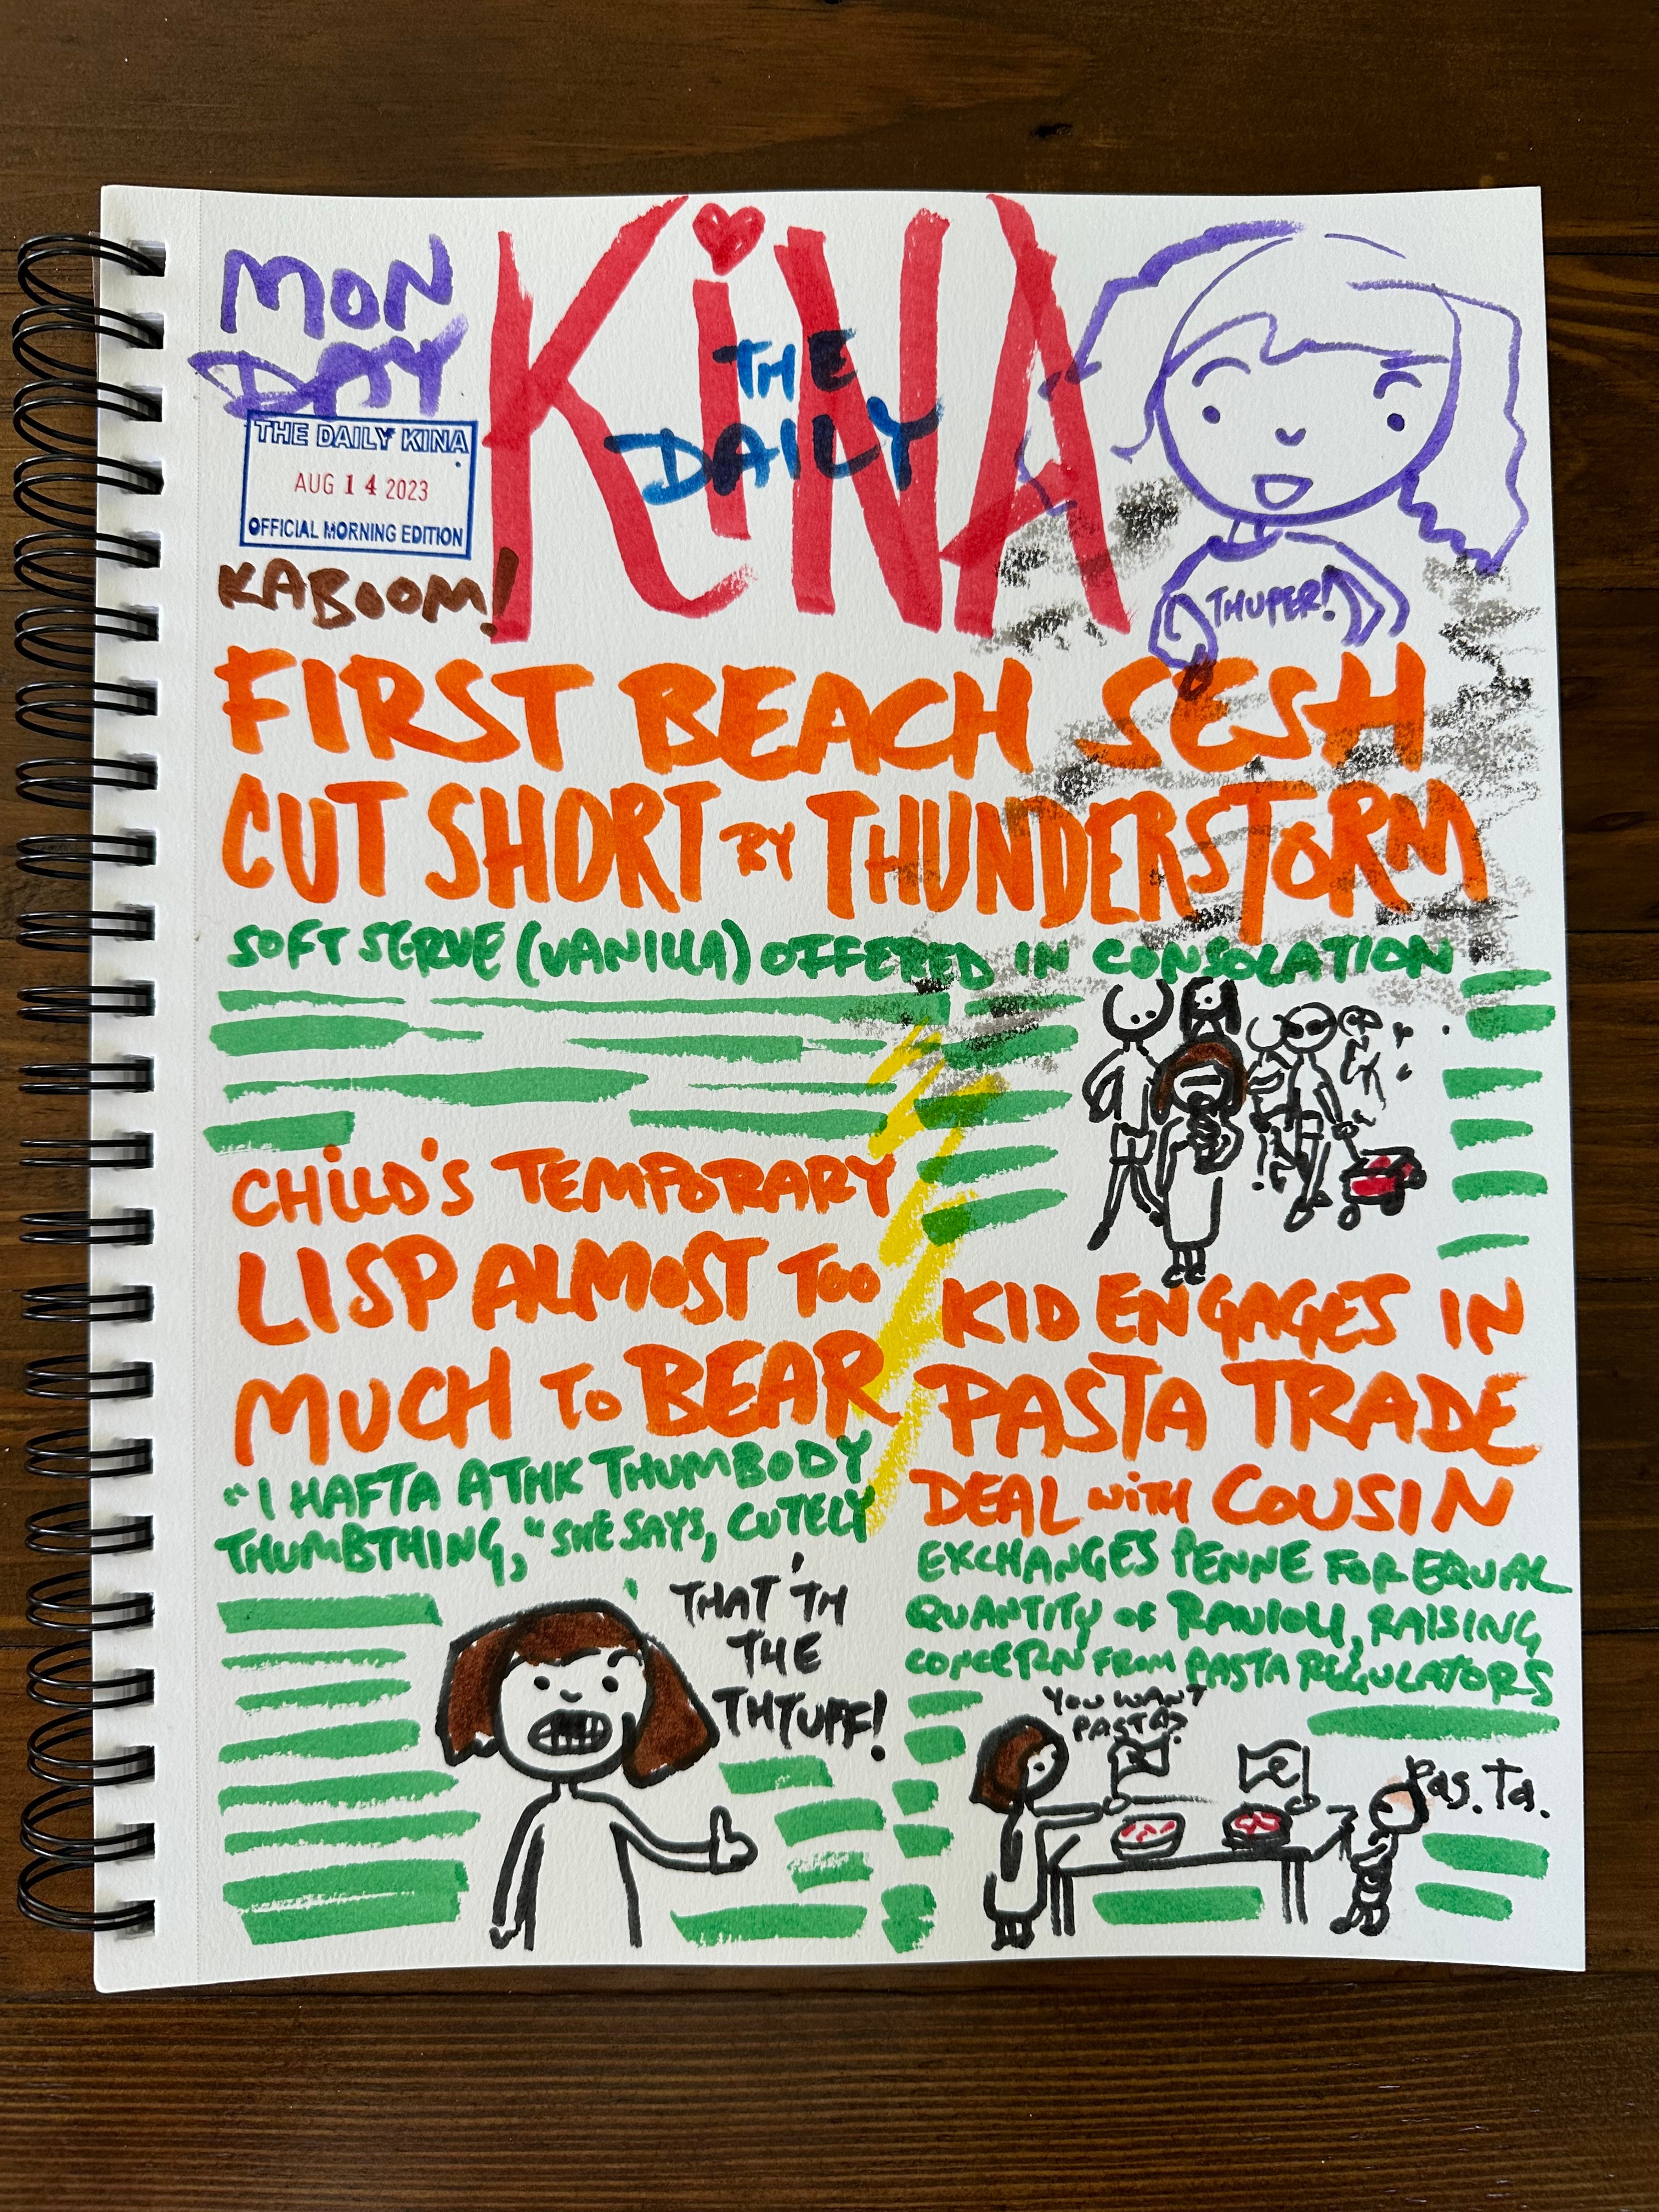 MON
DAY
THE DAILY KINA
AUG 14 2023
OFFICIAL MORNING EDITION
KiNA
THE
DAILY
THUPER!
KABOOM!
FIRST BEACH SESH
CUT SHORT BY THUNDERSTORM
SOFT SERVE (VANILLA) OFFERED IN CONSOLATION
CHiLD'S TEMPORARY
LISP ALMOST TOO
MUCH TO BEAR
"I HAFTA ATHK THUMBODY
THUMBTHING," SHE SAYS, CUTELY
THAT'TH
THE
THTUFF!
KID ENGAGES IN
PASTA TRADE
DEAL WiTH COUSIN
EXCHANGES PENNE FOR EQUAL
QUANTITY OF RAVIOLI, RAISING
CONCERN FROM PASTA REGULATORS
YOU WANT
PASTA?
Pas. Ta.